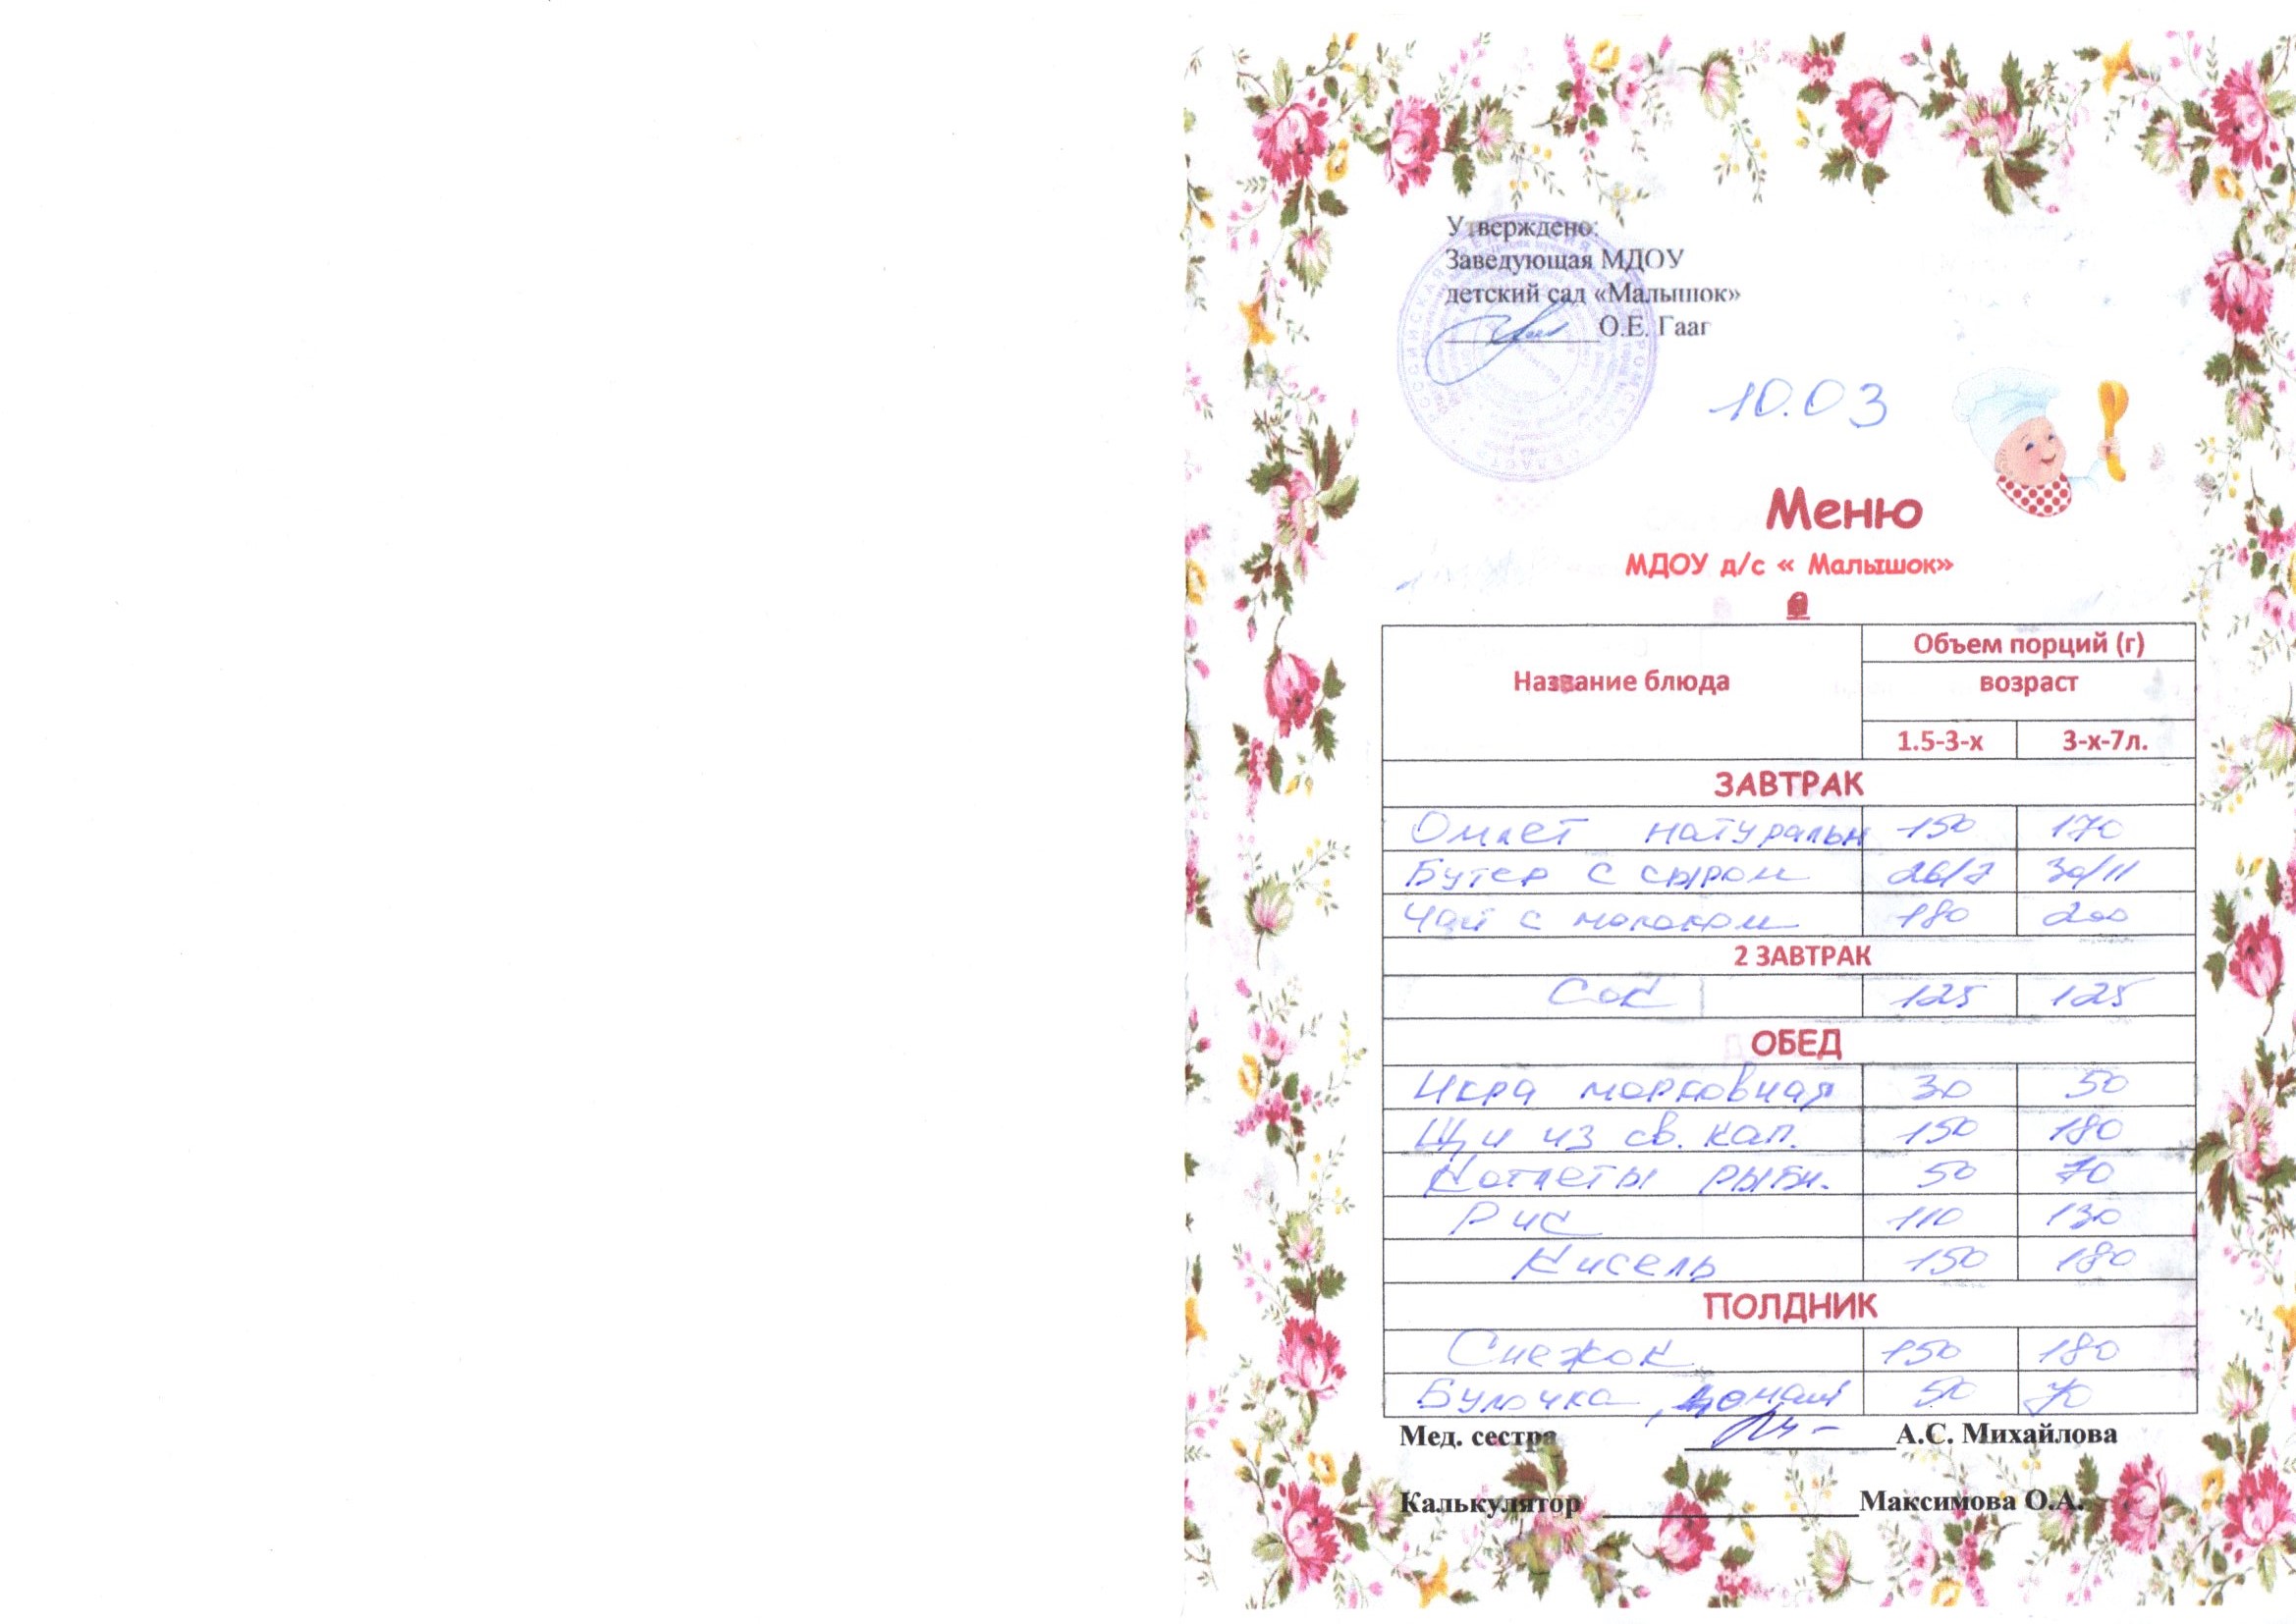 Утверждено:
Заведующая МДОУ
детский сад «Малышок»
О.Е. Гааг
10.03
Меню
МДОУ д/с « Малышок»
Название блюда
Объем порций (г)
возраст
1.5-3-х 3-х-7л.
ЗАВТРАК
Омлет натуральн 150 170
Бутер с сыром 26/7 30/11
Чай с молоком 180 200
2 ЗАВТРАК
Сок 125 125
ОБЕД
Икра морковная 30 50
Щи из св. кап. 150 180
Котлеты рыбн. 50 70
Рис 110 130
Кисель 150 180
ПОЛДНИК
Снежок 150 180
Булочка домаш 50 70
Мед. сестра А.С. Михайлова
Калькулятор Максимова О.А.